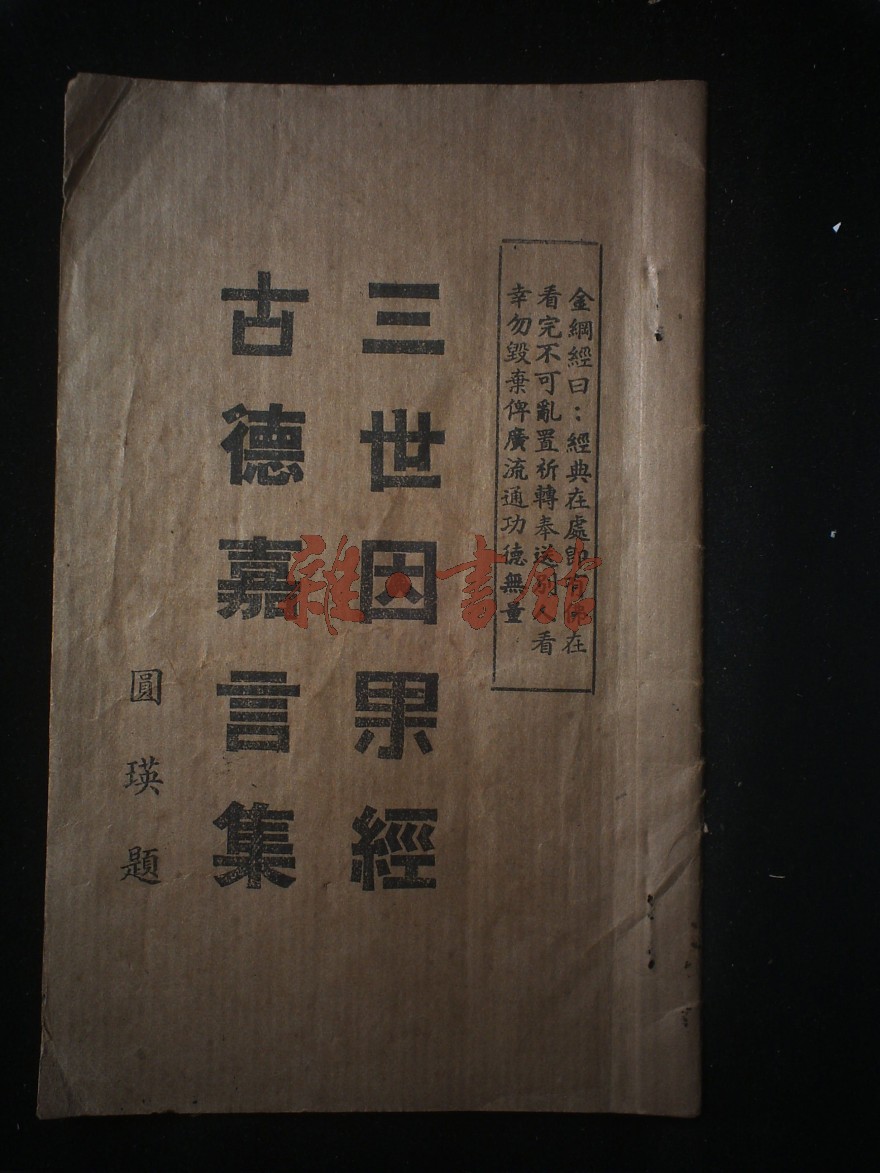 金綱經曰：經典在處即有佛在
看完不可亂置祈轉奉送別人看
幸勿毀棄俾廣流通功德無量
三世因果經
古德嘉言集
圓瑛題
雜·書館